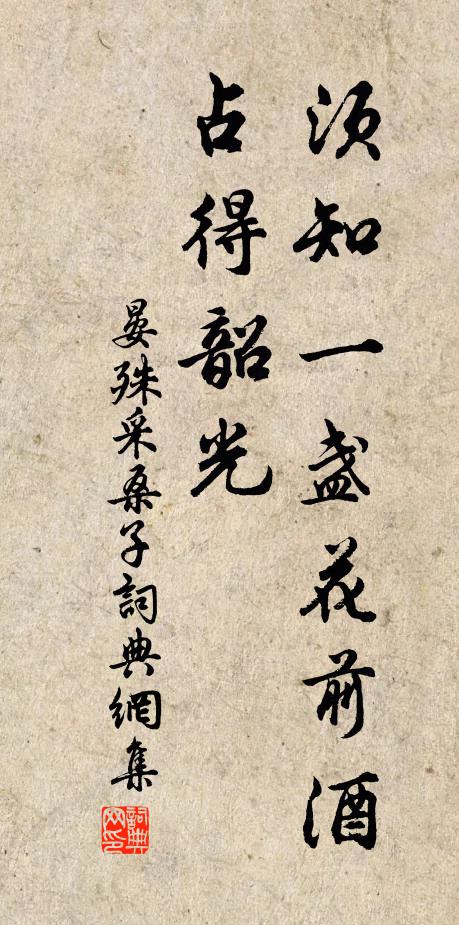 須知一盞花前酒
占得韶光
晏殊采桑子詞典網集
詞典网印